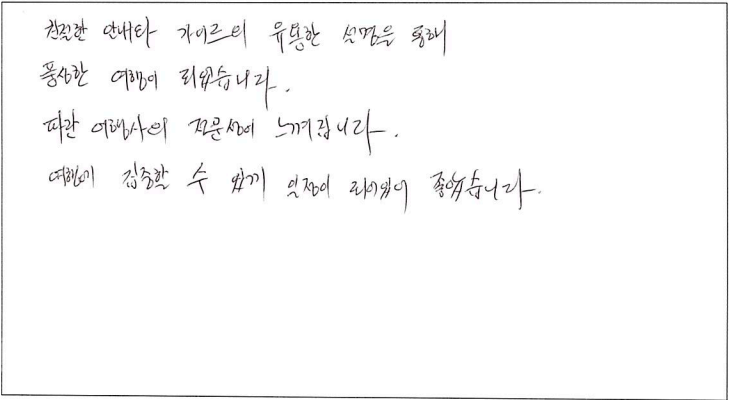 친절한 안내와 가이드의 유용한 설명을 통해
풍성한 여행이 되었습니다.
파란 여행사의 전문성이 느껴집니다.
여행에 집중할 수 있게 일정이 되어있어 좋았습니다.